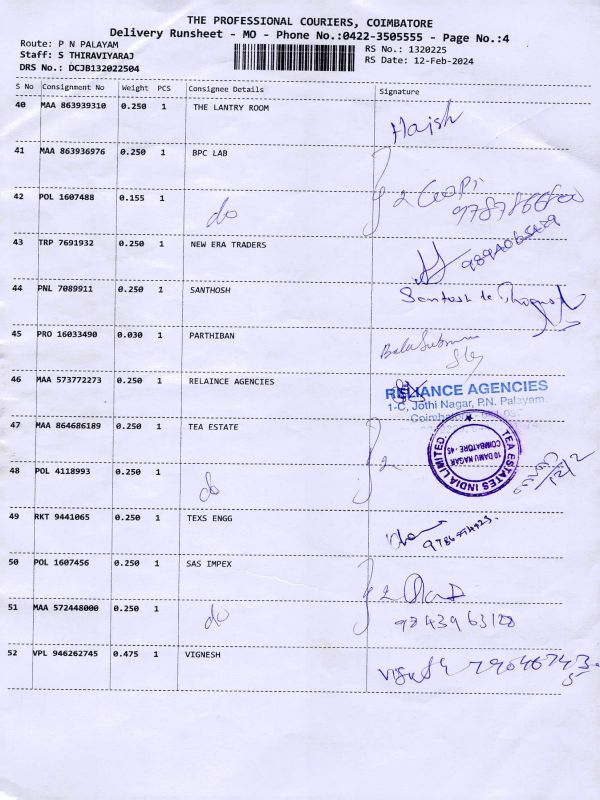 THE PROFESSIONAL COURIERS, COIMBATORE
Delivery Runsheet - MO - Phone No.:0422-3505555 - Page No.:4
Route: P N PALAYAM
RS No.: 1320225
Staff: S THIRAVIYARAJ
RS Date: 12-Feb-2024
DRS No.: DCJB132022504
S No Consignment No Weight PCS Consignee Details Signature
40 MAA 863939310 0.250 1 THE LANTRY ROOM
41 MAA 863936976 0.250 1 BPC LAB
42 POL 1607488 0.155 1 do
43 TRP 7691932 0.250 1 NEW ERA TRADERS
44 PNL 7089911 0.250 1 SANTHOSH
Santosh
45 PRO 16033490 0.030 1 PARTHIBAN
46 MAA 573772273 0.250 1 RELAINCE AGENCIES
RELIANCE AGENCIES
1-C, Jothi Nagar, P.N. Palayam,
Coimbatore
47 MAA 864686189 0.250 1 TEA ESTATE
TEA ESTATES INDIA LIMITED
10 DAMU NAGAR
COIMBATORE - 45
48 POL 4118993 0.250 1 do
12/2
49 RKT 9441065 0.250 1 TEXS ENGG
50 POL 1607456 0.250 1 SAS IMPEX
51 MAA 572448000 0.250 1 do
9843963128
52 VPL 946262745 0.475 1 VIGNESH